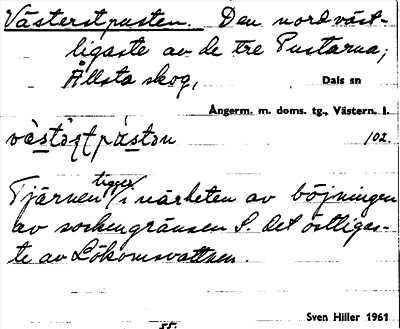 Västerstpusten. Den nordväst-
ligaste av de tre Pustarna;
Ällsta skog,
Dals sn
Ångerm. m. doms. tg., Västern. l.
102.
Tjärnen ligger i närheten av böjningen
av sockengränsen S. det östligas-
te av Lökomsvattnen.
Sven Hiller 1961
55.